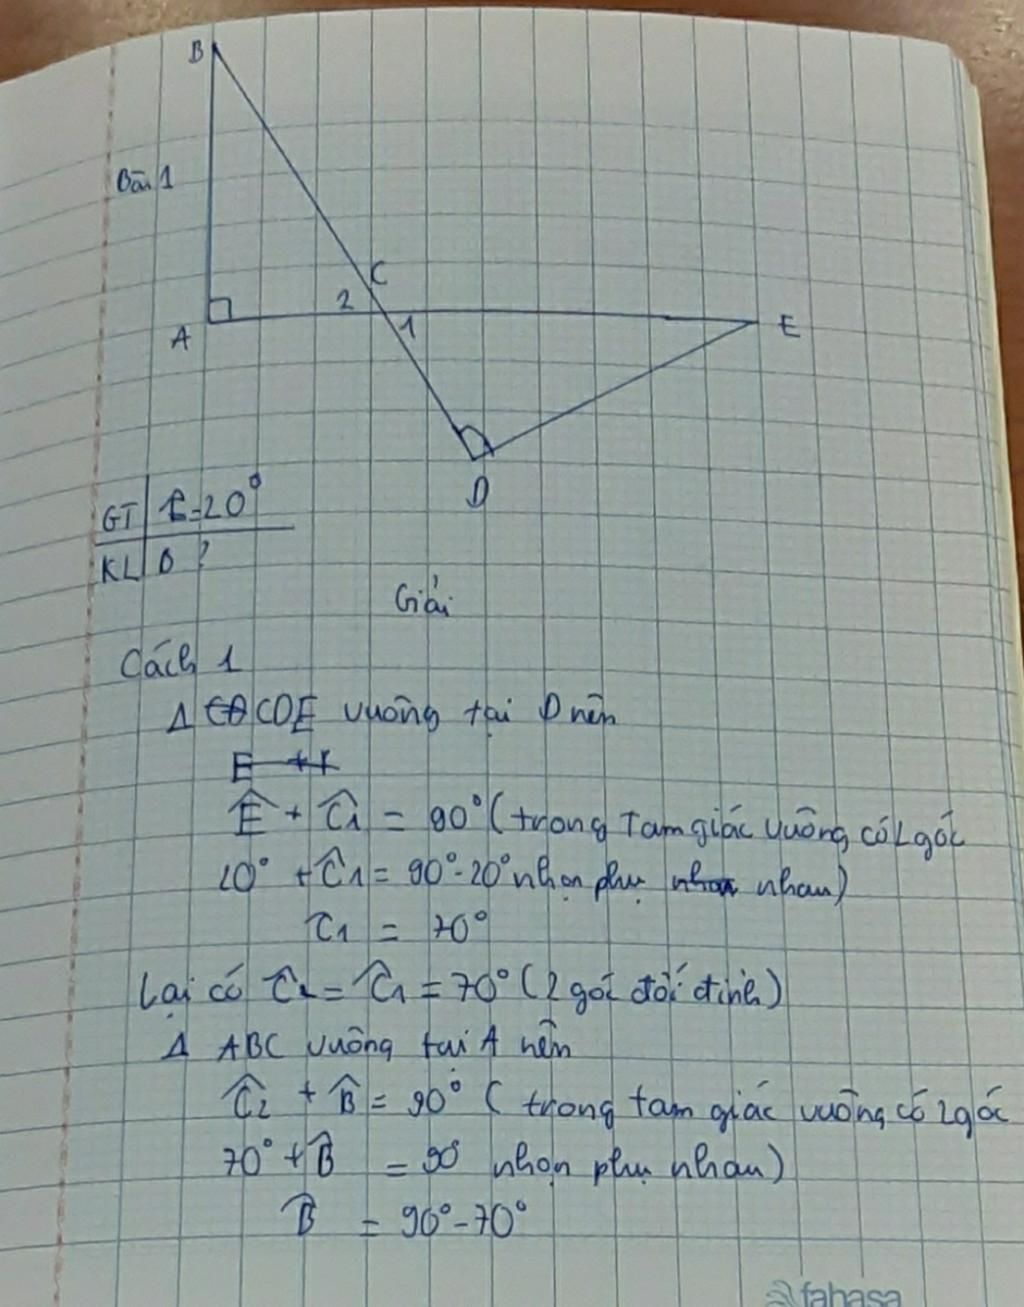 B
Bài 1
C
2
1
A
E
D
GT Ê=20°
KL B ?
Giải
Cách 1
Δ CDE vuông tại D nên
Ê + Ĉ1 = 90° (trong Tam giác vuông có 2 góc
20° + Ĉ1 = 90°-20° nhọn phụ nhau)
Ĉ1 = 70°
Lại có Ĉ2 = Ĉ1 = 70° (2 góc đối đỉnh)
Δ ABC vuông tại A nên
Ĉ2 + B̂ = 90° ( trong tam giác vuông có 2 góc
70° + B̂ = 90 nhọn phụ nhau)
B̂ = 90°-70°
fahasa